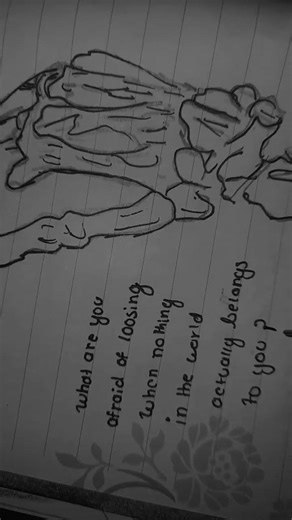 what are you
afraid of loosing
when nothing
in the world
actually belongs
to you ?